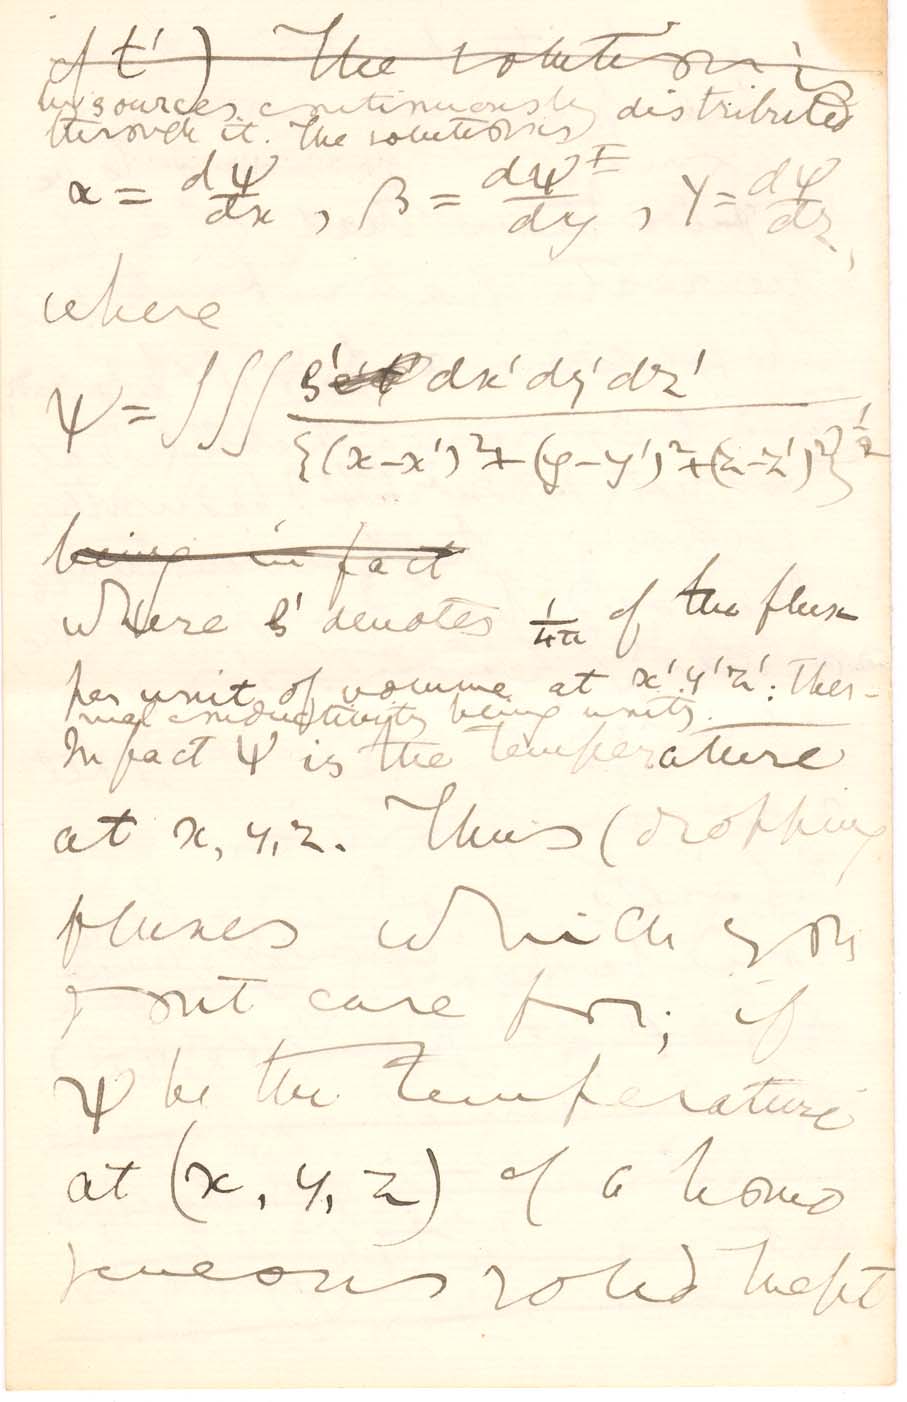 of t') The solution is
by sources continuously distributed
through it. The solution is
α = dψ/dx , β = dψ/dy , γ = dψ/dz ,
where
ψ = ∫∫∫ ϛ' dx' dy' dz' / {(x-x')²+(y-y')²+(z-z')²}^½
being in fact
where ϛ' denotes 1/4π of the flux
per unit of volume at x' y' z': ther-
mal conductivity being unity.
In fact ψ is the temperature
at x, y, z. Thus (dropping
fluxes which you
dont care for; if
ψ be the temperature
at (x, y, z) of a homo
geneous solid kept